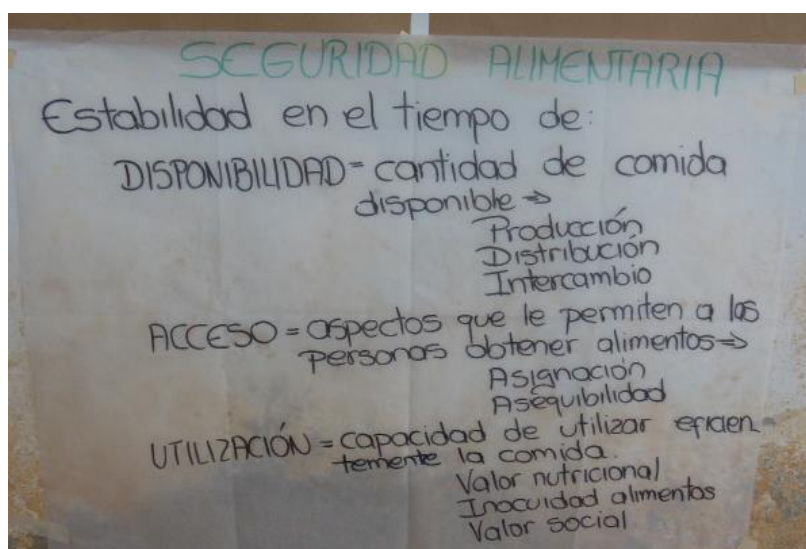 SEGURIDAD ALIMENTARIA
Estabilidad en el tiempo de:
DISPONIBILIDAD = cantidad de comida
disponible ⇒
Producción
Distribución
Intercambio
ACCESO = aspectos que le permiten a las
personas obtener alimentos ⇒
Asignación
Asequibilidad
UTILIZACIÓN = capacidad de utilizar eficien-
temente la comida.
Valor nutricional
Inocuidad alimentos
Valor social